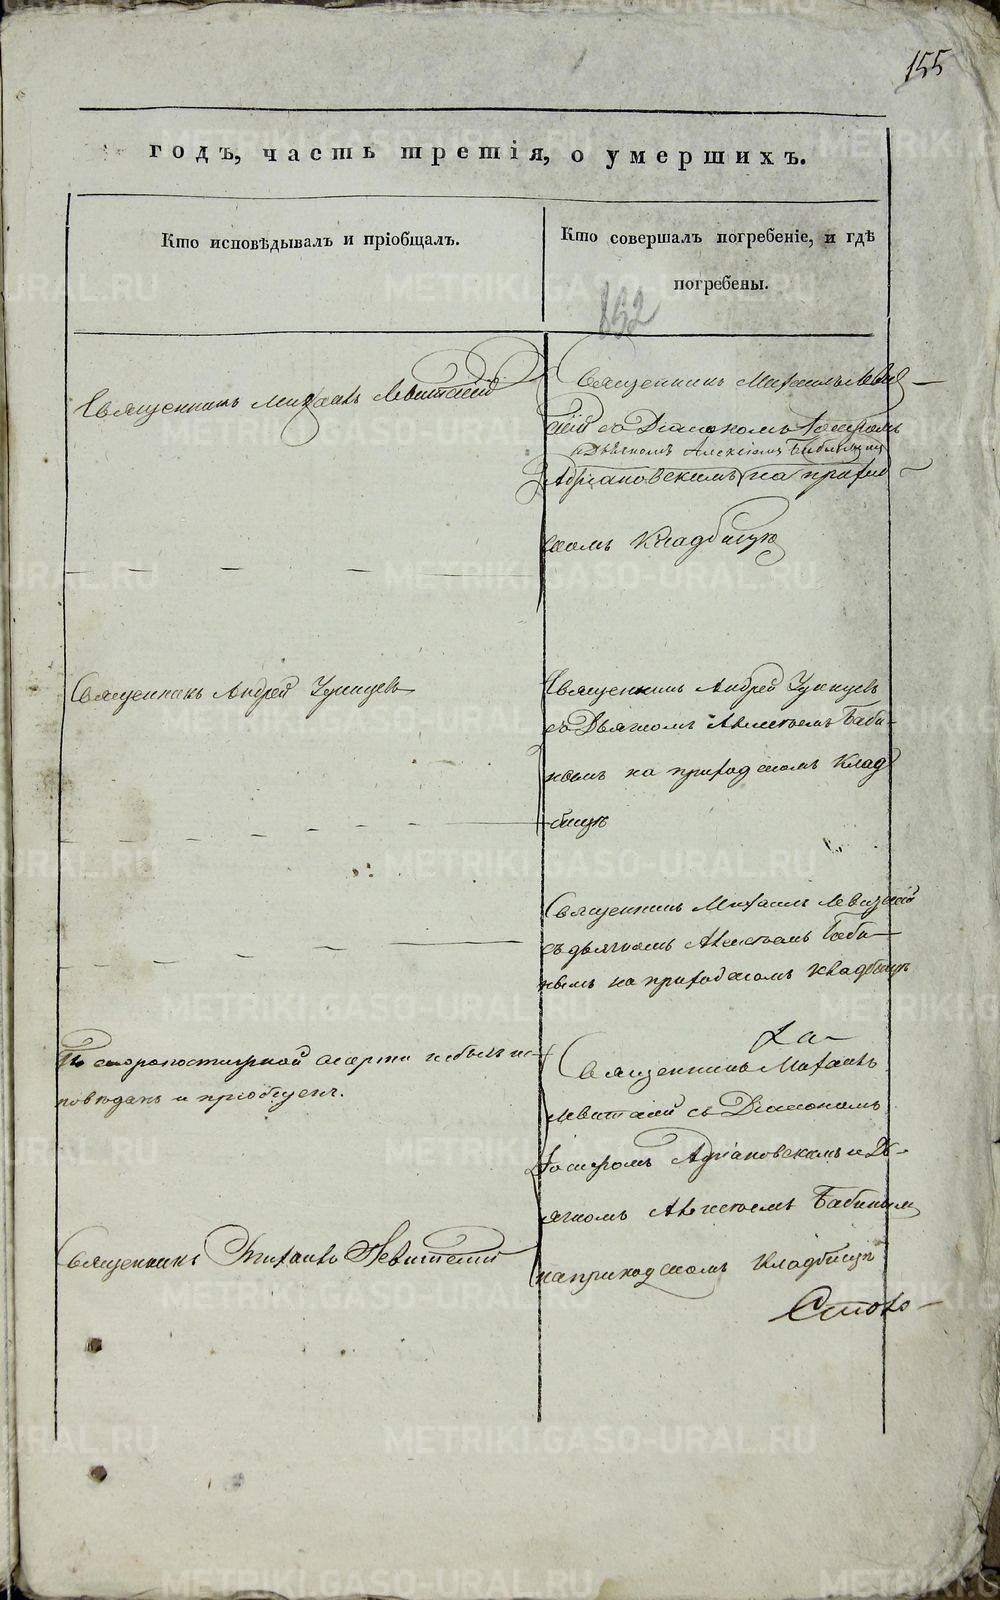 155
годъ, часть третія, о умершихъ.
Кто исповѣдывалъ и пріобщалъ.
Кто совершалъ погребеніе, и гдѣ
погребены.
152
Священникъ Михаилъ Левитскій
Священникъ Михаилъ Левит
скій съ Діакономъ
и Дьячкомъ Алексіемъ Бабинымъ
Адріановскимъ на приход
скомъ Кладбищѣ
Священникъ Андрей
Священникъ Андрей
съ Дьячкомъ Алексѣемъ Баби-
нымъ на приходскомъ Клад
бищѣ
Священникъ Михаилъ Левитскій
съ дьячкомъ Алексѣемъ Баби-
нымъ на приходскомъ кладбищѣ
По скоропостижной смерти небылъ ис-
повѣданъ и пріобщенъ.
Священникъ Михаилъ
Левитскій съ Діакономъ
Адріановскимъ и Дь-
ячкомъ Алексѣемъ Бабинымъ
на приходскомъ Кладбищѣ
Священникъ Михаилъ Левитскій
METRIKI.GASO-URAL.RU